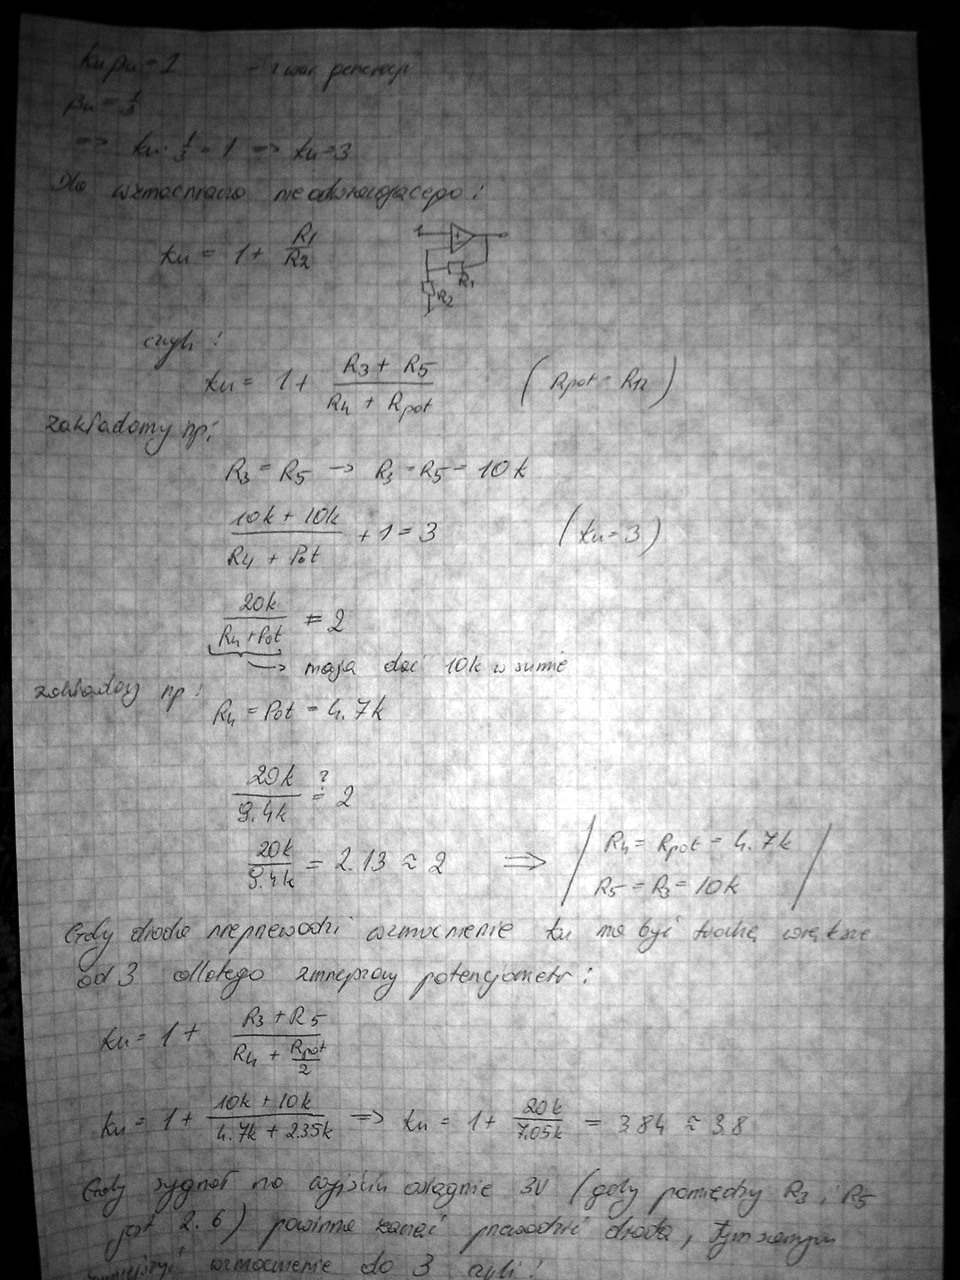 ku βu = 1 - 1 war generacji
βu = 1/3
=> ku · 1/3 = 1 => ku = 3
Dla wzmacniacza nieodwracającego:
ku = 1 + R1/R2
R1
R2
czyli:
ku = 1 + (R3 + R5)/(R4 + Rpot) (Rpot = R12)
zakładamy np:
R3 = R5 -> R3 = R5 = 10k
(10k + 10k)/(R4 + Pot) + 1 = 3 (ku = 3)
20k/(R4 + Pot) = 2
-> mają dać 10k w sumie
zakładamy np:
R4 = Pot = 4.7k
20k/9.4k ?= 2
20k/9.4k = 2.13 ≈ 2 => R4 = Rpot = 4.7k
R5 = R3 = 10k
Gdy dioda nieprzewodzi wzmocnienie ku ma być trochę większe
od 3 dlatego zmniejszamy potencjometr:
ku = 1 + (R3 + R5)/(R4 + Rpot/2)
ku = 1 + (10k + 10k)/(4.7k + 2.35k) => ku = 1 + 20k/7.05k = 3.84 ≈ 3.8
Gdy sygnał na wyjściu osiągnie 3V (gdy pomiędzy R3 i R5
jest 2.6) powinna zacząć przewodzić dioda, tym samym
wzmocnienie do 3 czyli: